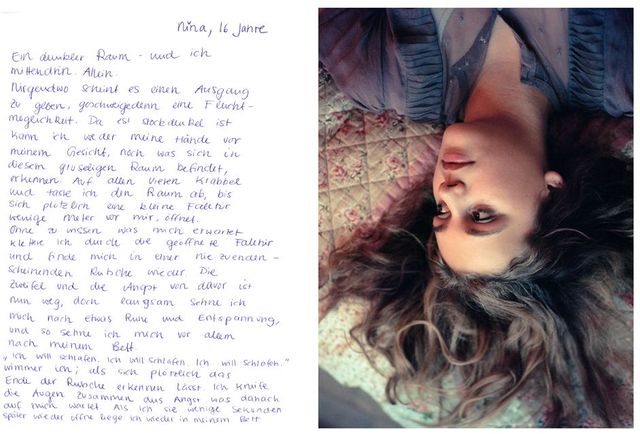 Nina, 16 Jahre
Ein dunkler Raum - und ich
mittendrin. Allein.
Nirgendwo scheint es einen Ausgang
zu geben, geschweigedenn eine Flucht-
möglichkeit. Da es stockdunkel ist
kann ich weder meine Hände vor
meinem Gesicht, noch was sich in
diesem gruseligen Raum befindet,
erkennen. Auf allen Vieren krabbel
und taste ich den Raum ab, bis
sich plötzlich eine kleine Falltür
wenige Meter vor mir, öffnet.
Ohne zu wissen was mich erwartet
klettere ich durch die geöffnete Falltür
und finde mich in einer nie zuenden-
scheinenden Rutsche wieder. Die
Zweifel und die Angst von davor ist
nun weg, doch langsam sehne ich
mich nach etwas Ruhe und Entspannung,
und so sehne ich mich vor allem
nach meinem Bett.
"Ich will schlafen. Ich will schlafen. Ich will schlafen."
wimmer ich; als sich plötzlich das
Ende der Rutsche erkennen lässt. Ich kneife
die Augen zusammen aus Angst was danach
auf mich wartet. Als ich sie wenige Sekunden
später wieder öffne liege ich wieder in meinem Bett